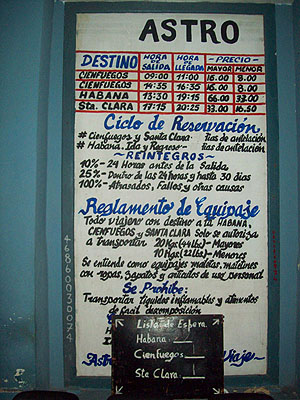 ASTRO
DESTINO HORA DE SALIDA HORA DE LLEGADA -PRECIO-
MAYOR MENOR
CIENFUEGOS 09:00 11:00 16.00 8.00
CIENFUEGOS 14:55 16:35 16.00 8.00
HABANA 13:30 19:15 66.00 33.00
Sta. CLARA 17:15 20:25 33.00 16.50
Ciclo de Reservación
# Cienfuegos y Santa Clara: días de antelación
# Habana, Ida y Regreso- días de antelación
~REINTEGROS~
10% - 24 Horas antes de la Salida
25% - Dentro de las 24 horas y hasta 30 días
100% - Atrasados, Fallos y otras causas
Reglamento de Equipaje
Todo viajero con destino a la HABANA,
CIENFUEGOS y SANTA CLARA Solo se autoriza
a transportar 20 Kgr. (44 Lbs) - Mayores
10 Kgr. (22 Lbs) - Menores
Se entiende como equipajes maletas, maletines
con ropas, zapatos y artículos de uso personal
Se Prohibe:
Transportar líquidos inflamables y alimentos
de fácil descomposición
46860030074
Lista de Espera
Habana
Cienfuegos
Sta Clara
Viaje